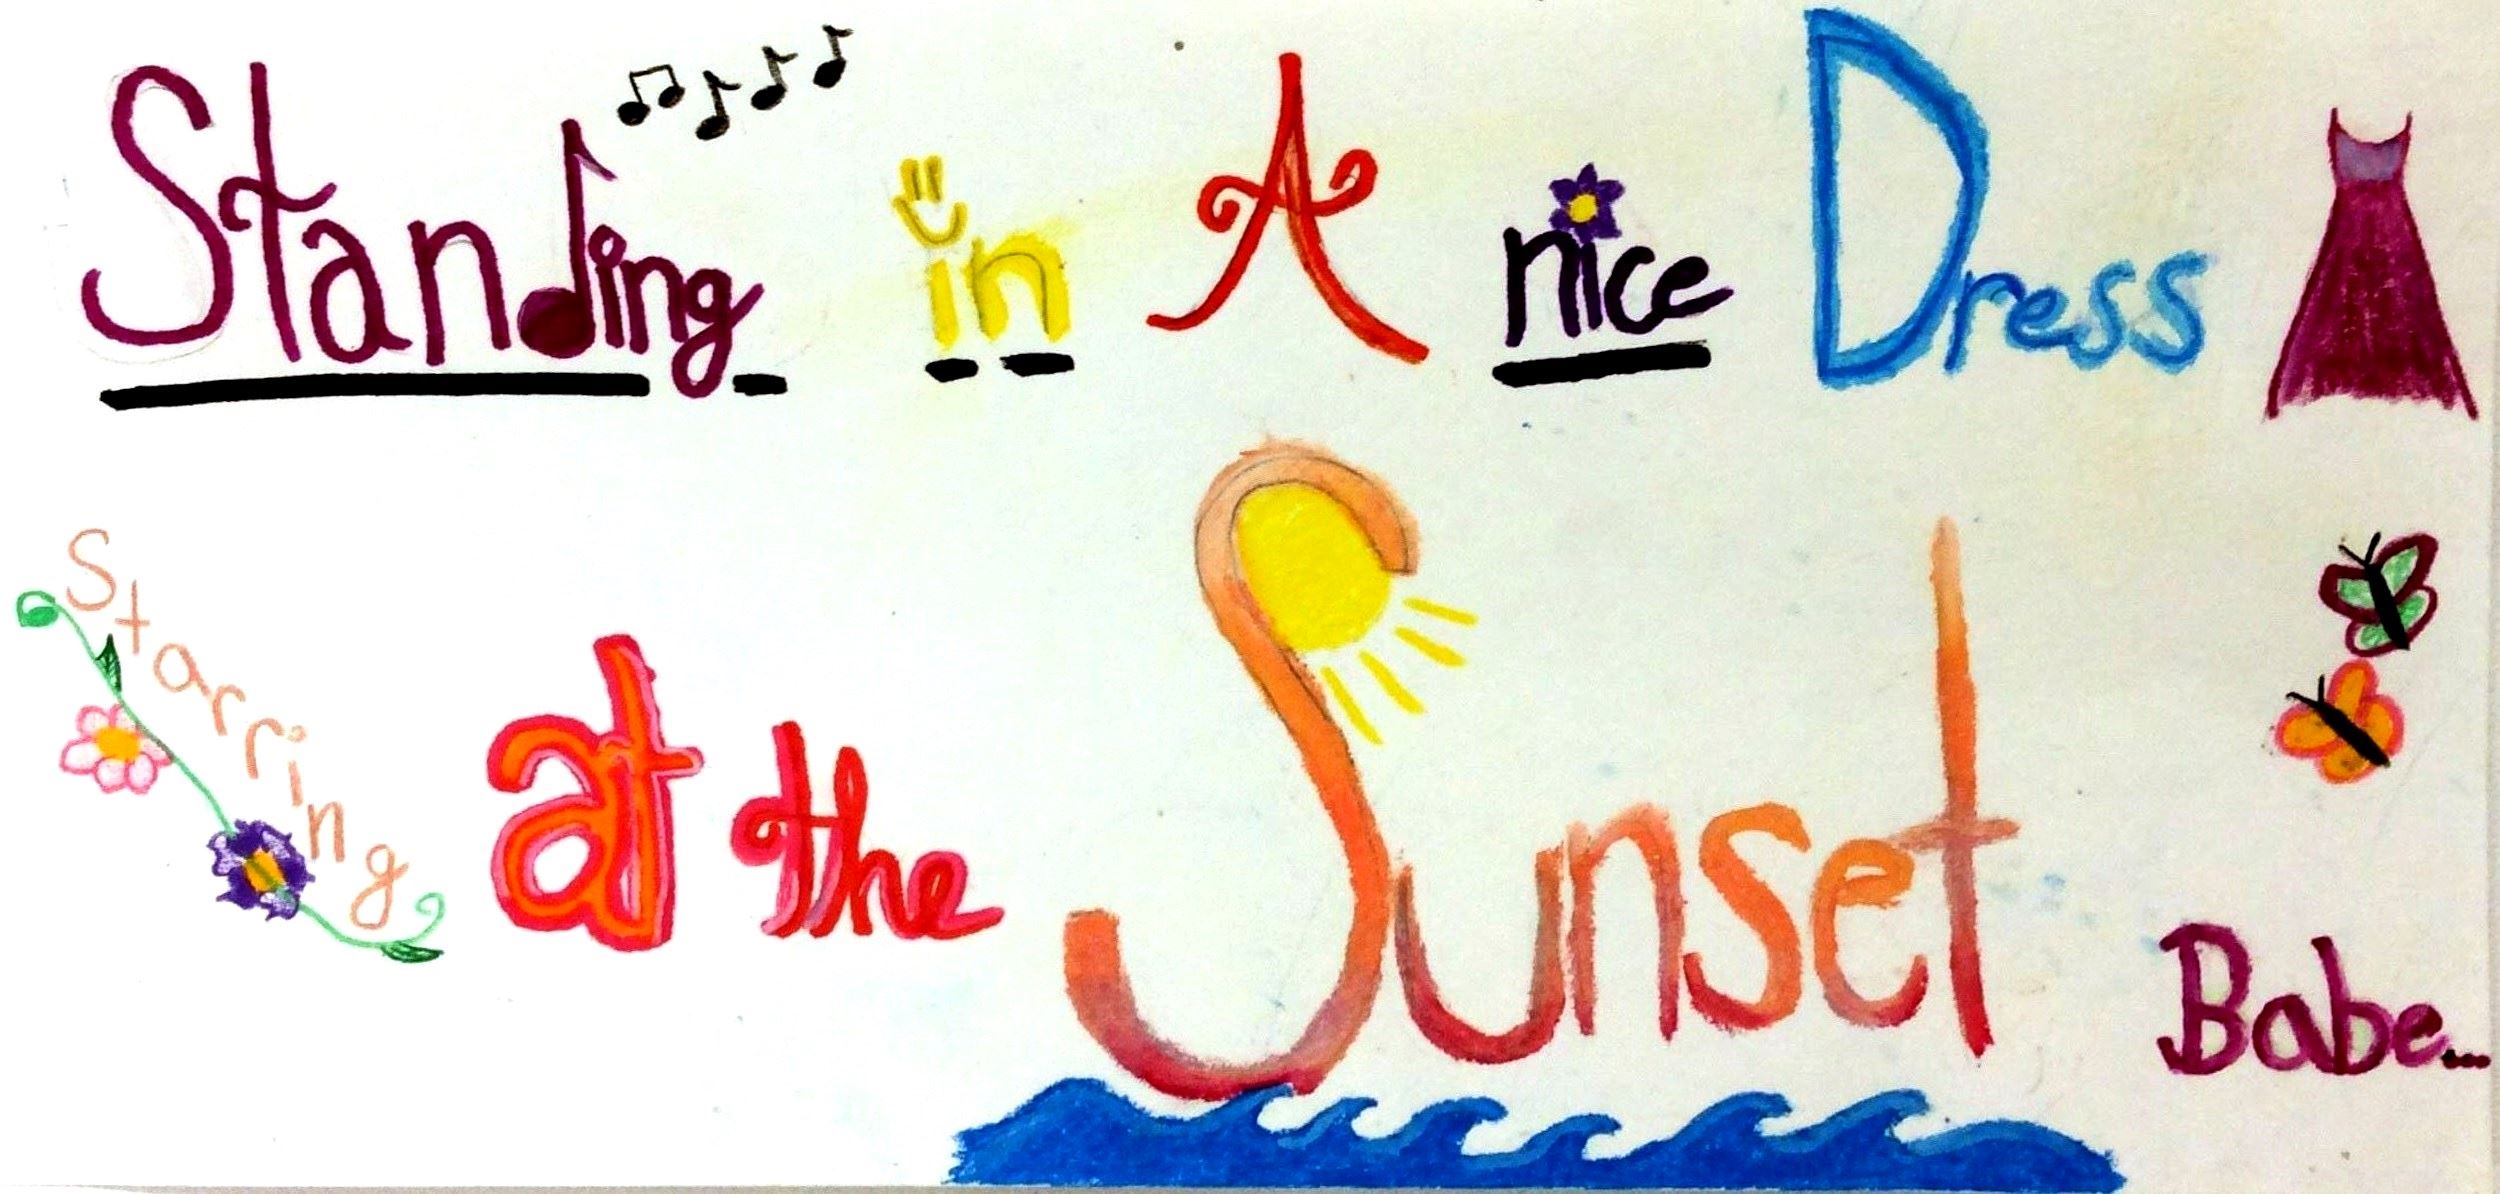 Standing in A nice Dress
Starring at the Sunset Babe...